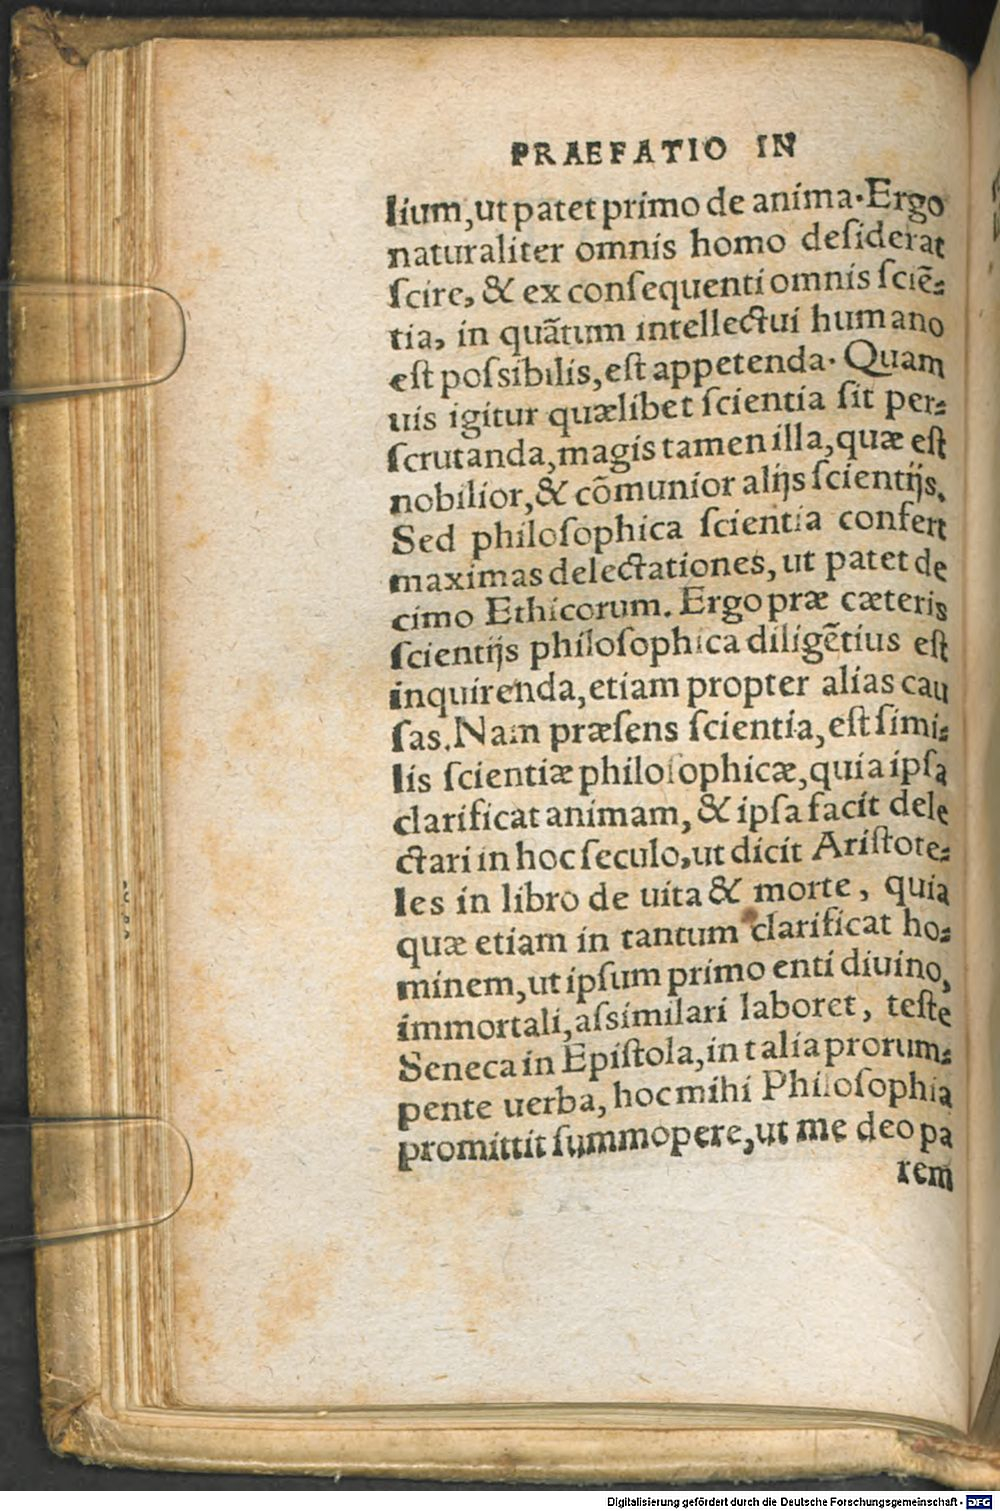 PRAEFATIO IN
lium, ut patet primo de anima. Ergo
naturaliter omnis homo deſiderat
ſcire, & ex conſequenti omnis ſciẽ-
tia, in quãtum intellectui humano
eſt poſsibilis, eſt appetenda. Quam
uis igitur quælibet ſcientia ſit per-
ſcrutanda, magis tamen illa, quæ eſt
nobilior, & cõmunior alijs ſcientijs.
Sed philoſophica ſcientia confert
maximas delectationes, ut patet de
cimo Ethicorum. Ergo præ cæteris
ſcientijs philoſophica diligẽtius eſt
inquirenda, etiam propter alias cau
ſas. Nam præſens ſcientia, eſt ſimi-
lis ſcientiæ philoſophicæ, quia ipſa
clarificat animam, & ipſa facit dele
ctari in hoc ſeculo, ut dicit Ariſtote-
les in libro de uita & morte, quia
quæ etiam in tantum clarificat ho-
minem, ut ipſum primo enti diuino,
immortali, aſsimilari laboret, teſte
Seneca in Epiſtola, in talia prorum-
pente uerba, hoc mihi Philoſophia
promittit ſummopere, ut me deo pa
rem
Digitalisierung gefördert durch die Deutsche Forschungsgemeinschaft - DFG